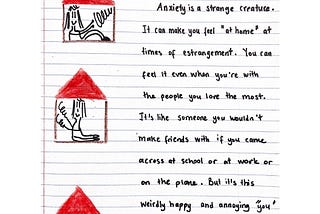 Anxiety is a strange creature.
It can make you feel "at home" at
times of estrangement. You can
feel it even when you're with
the people you love the most.
It's like someone you wouldn't
make friends with if you came
across at school or at work or
on the plane. But it's this
weirdly happy and annoying "you"